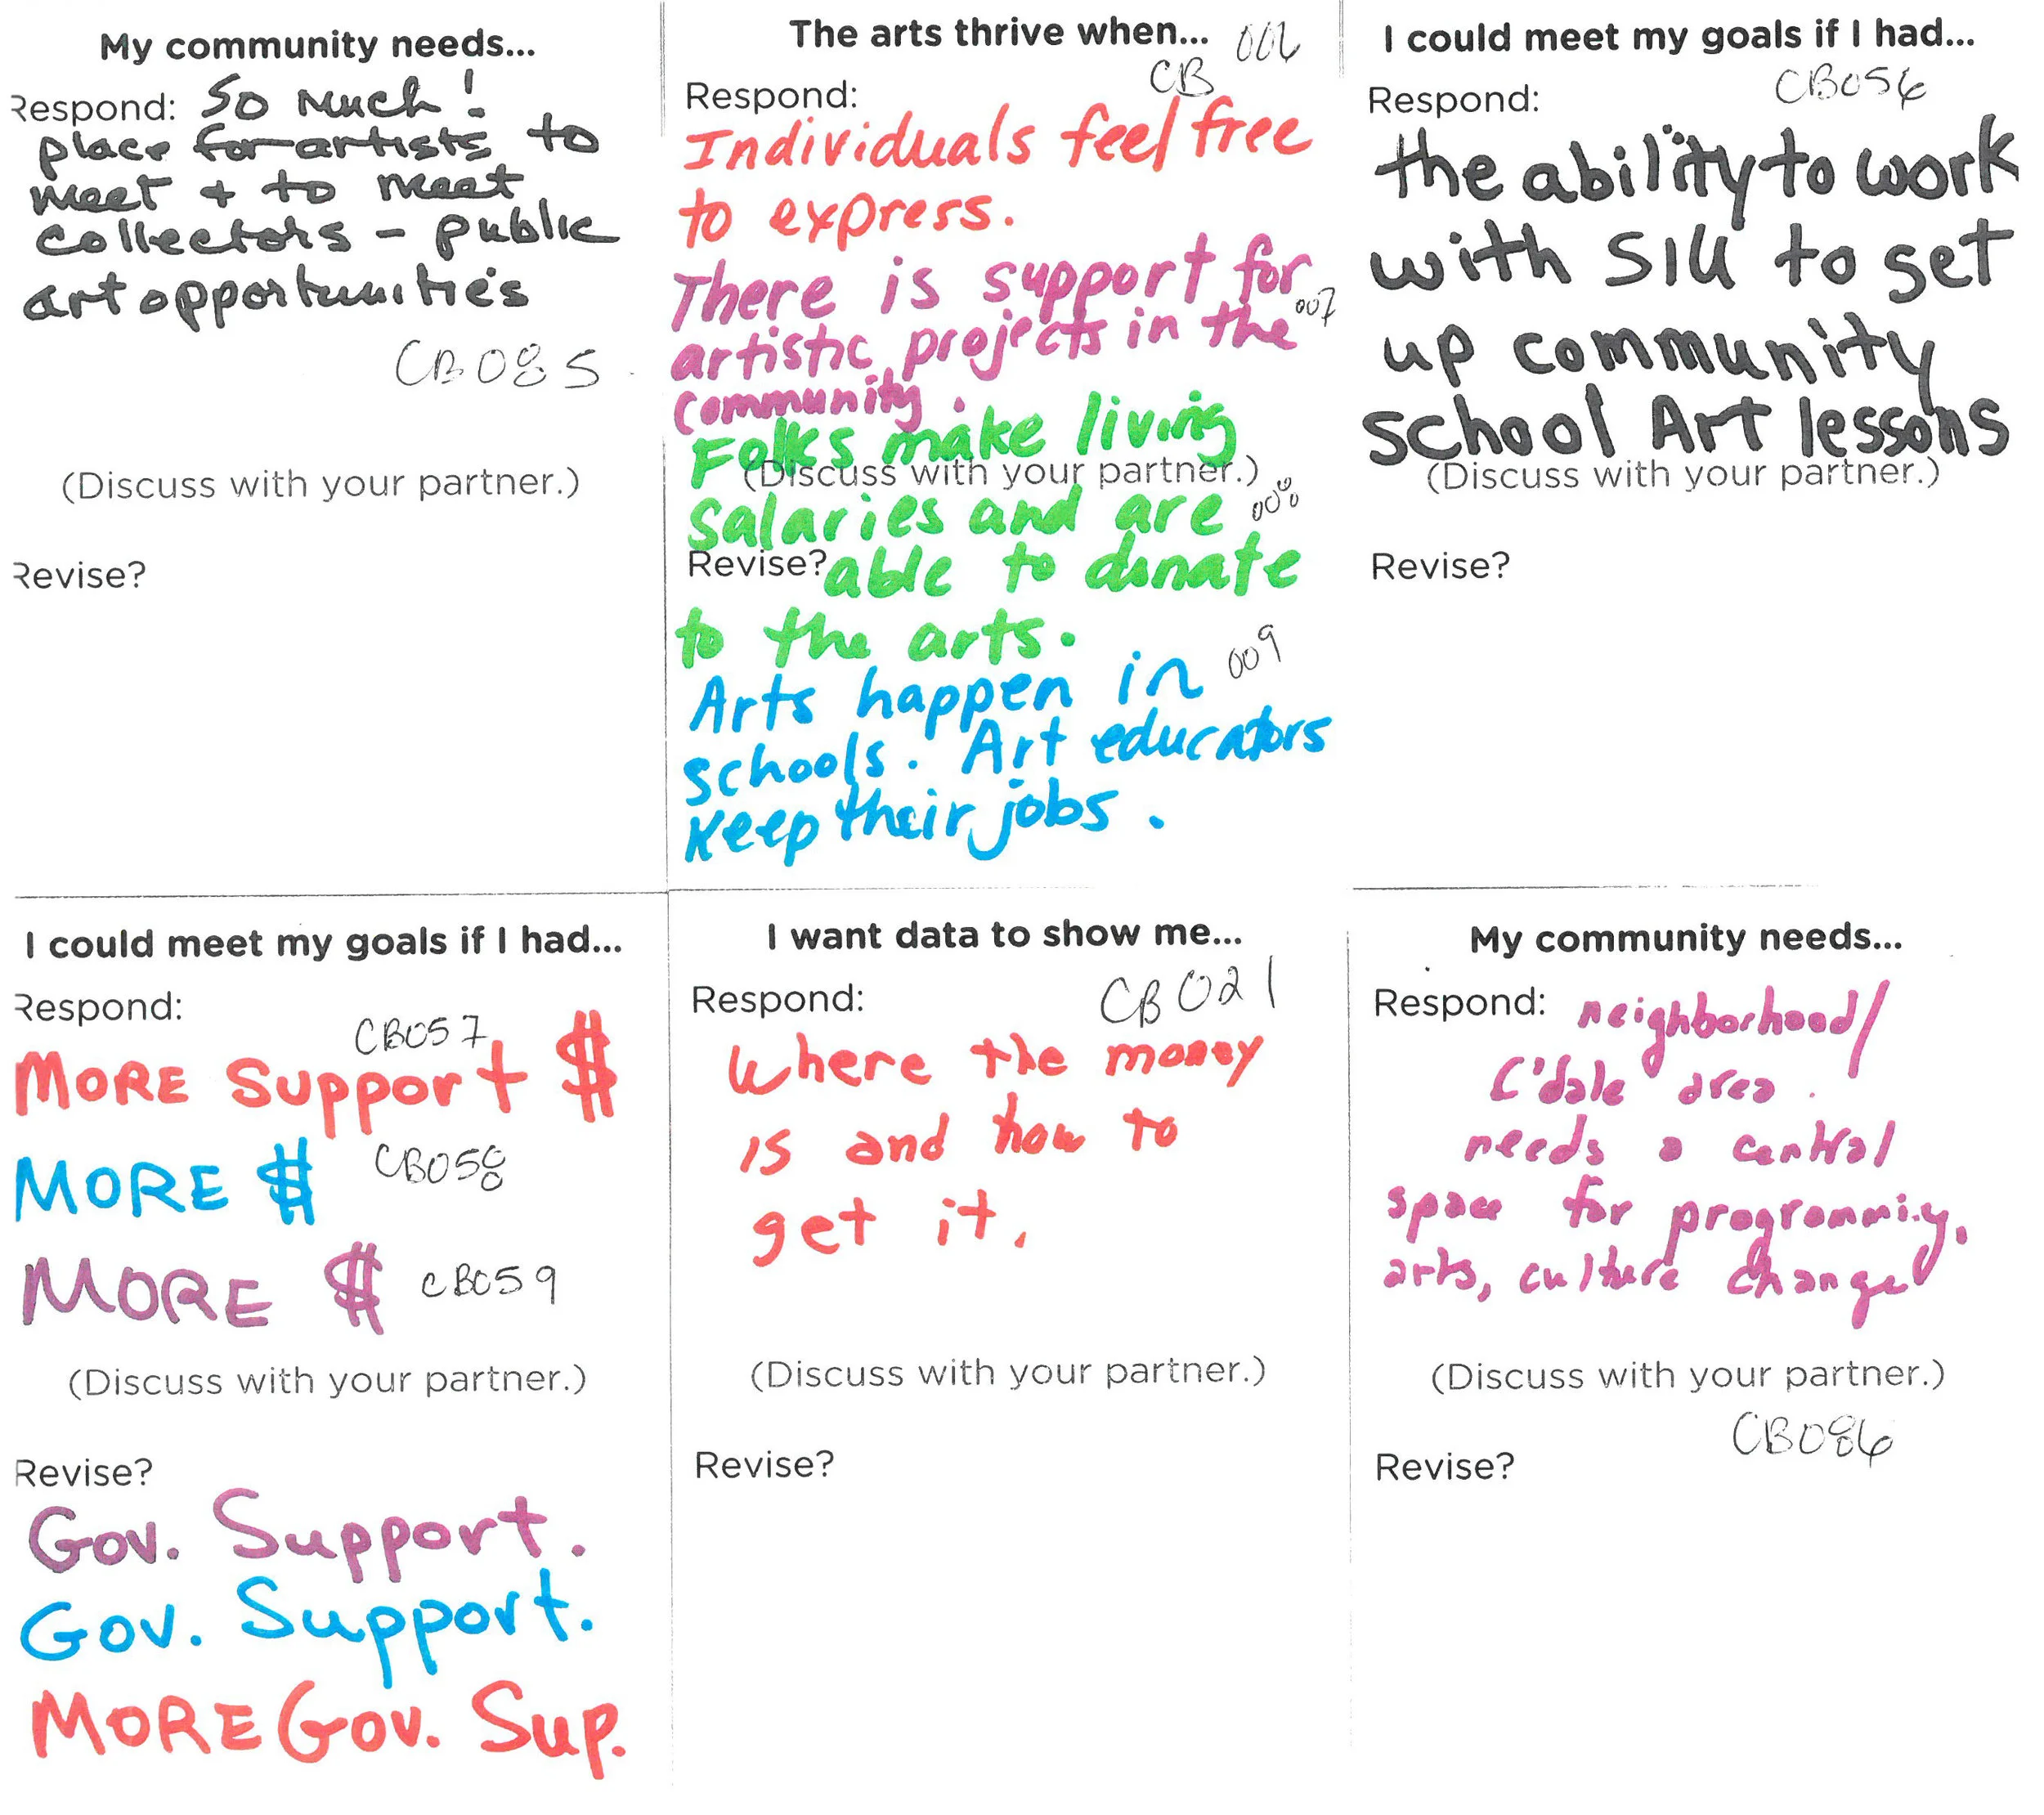 My community needs...
Respond: So much!
place for artists to
meet + to meet
collectors - public
art opportunities
CB085
(Discuss with your partner.)
Revise?
The arts thrive when...
006
CB
Respond:
Individuals feel free
to express.
There is support for
007
artistic projects in the
community.
Folks make living
(Discuss with your partner.)
salaries and are
008
Revise? able to donate
to the arts.
009
Arts happen in
schools. Art educators
keep their jobs.
I could meet my goals if I had...
CB056
Respond:
the ability to work
with SIU to set
up community
school Art lessons
(Discuss with your partner.)
Revise?
I could meet my goals if I had...
Respond:
CB057
MORE Support $
MORE $ CB058
MORE $ CB059
(Discuss with your partner.)
Revise?
Gov. Support.
Gov. Support.
MORE Gov. Sup.
I want data to show me...
Respond: CB021
Where the money
is and how to
get it.
(Discuss with your partner.)
Revise?
My community needs...
Respond: neighborhood/
C'dale area.
needs a central
space for programming,
arts, culture change
(Discuss with your partner.)
CB086
Revise?